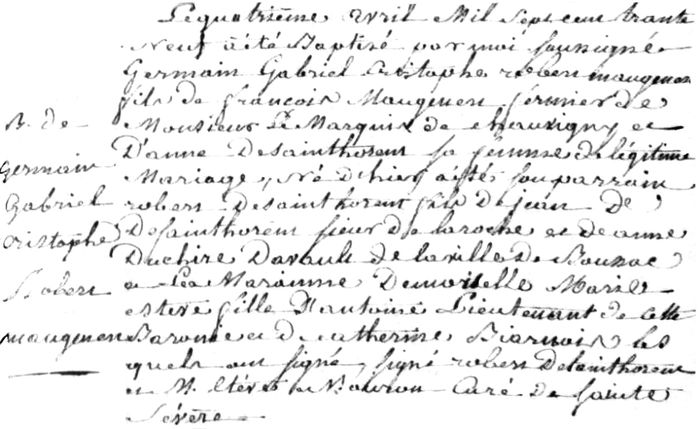 Le quatrieme avril Mil Sept cent trante
Neuf a été Baptisé par moi sousigné
Germain Gabriel Cristophe robert maugenen
fils de francois Maugenen fermier de
Monsieur Le Marquis de chauvigny et
D'anne Desainthorent sa femme de légitime
Mariage, Né D'hier a été son parrain
robert Desainthorent fils de Jean de
Desainthorent sieur de laroche et de anne
Duchire Davault de la ville de Boussac
et La Marainne Demoiselle Marie
esteve fille D'antoine Lieutenant de cette
Baronie et de catherine Biarnois les
quels ont signé, signé robert Desainthorent
et M. Estéve Curé de Sainte
Sévére
B. de
Germain
Gabriel
Cristophe
Robert
maugenen